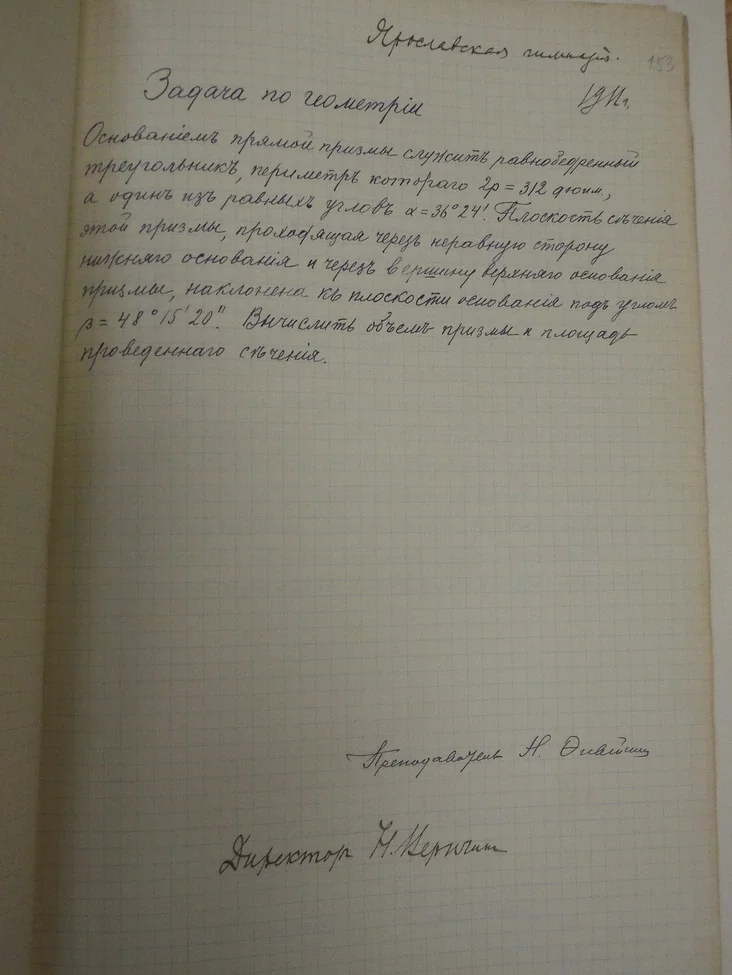 Ярославская гимназія.
153
Задача по геометріи
1911 г.
Основаніемъ прямой призмы служитъ равнобедренный
треугольникъ, периметръ котораго 2p = 312 дюйм,
а одинъ изъ равныхъ угловъ α = 36° 24'. Плоскость сѣченія
этой призмы, проходящая черезъ неравную сторону
нижняго основанія и черезъ вершину верхняго основанія
призмы, наклонена къ плоскости основанія подъ угломъ
β = 48° 15' 20". Вычислить объемъ призмы и площадь
проведеннаго сѣченія.
Преподаватель Н.
Директоръ Н.